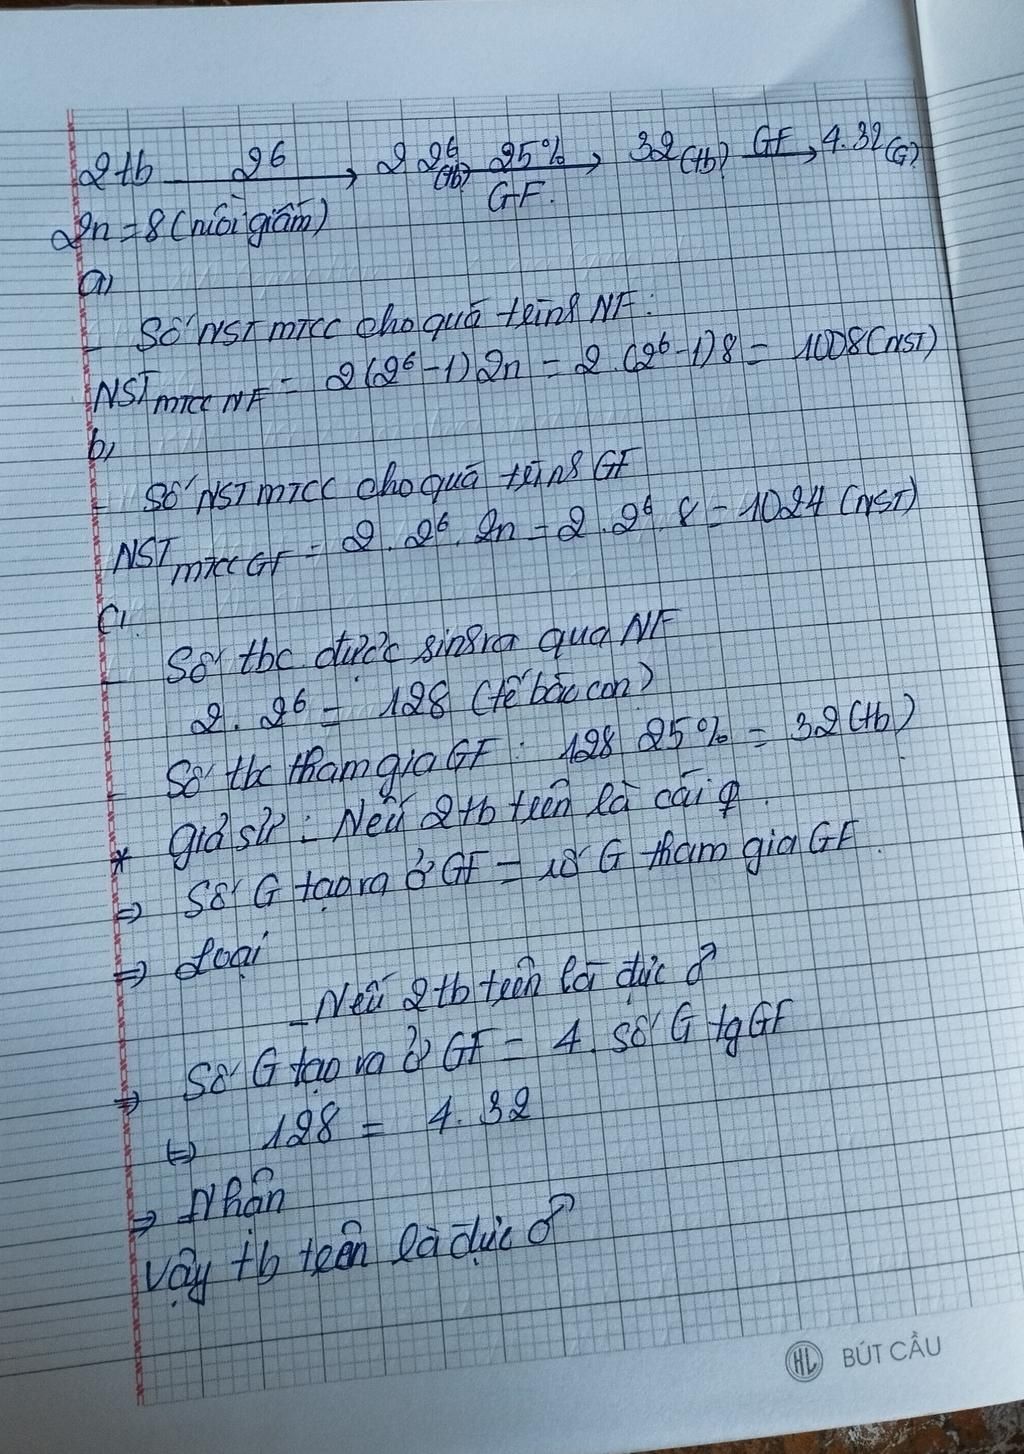 2tb 2⁶ → 2.2⁶ (tb) 25% GF. → 32 (tb) GF → 4.32 (G)
2n = 8 (ruồi giấm)
a,
- Số NST mtcc cho quá trình NF:
NST mtcc NF = 2(2⁶-1)2n = 2.(2⁶-1)8 = 1008 (NST)
b,
- Số NST mtcc cho quá trình GF
NST mtcc GF = 2.2⁶.2n = 2.2⁶.8 = 1024 (NST)
c,
- Số tbc được sinh ra qua NF
2.2⁶ = 128 (tế bào con)
- Số tbc tham gia GF: 128.25% = 32 (tb)
* Giả sử: Nếu 2tb trên là cái ♀.
⇒ Số G tạo ra ở GF = số G tham gia GF.
⇒ Loại
- Nếu 2tb trên là đực ♂
⇒ Số G tạo ra ở GF = 4. số G tg GF
⇔ 128 = 4.32
⇒ Nhận
Vậy tb trên là đực ♂
HL BÚT CẦU